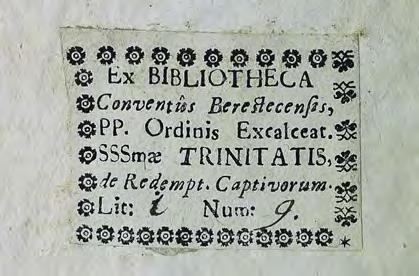 Ex BIBLIOTHECA
Conventûs Berestecensis,
PP. Ordinis Excalceat.
SSSmæ TRINITATIS,
de Redempt. Captivorum.
Lit: i Num: 9.